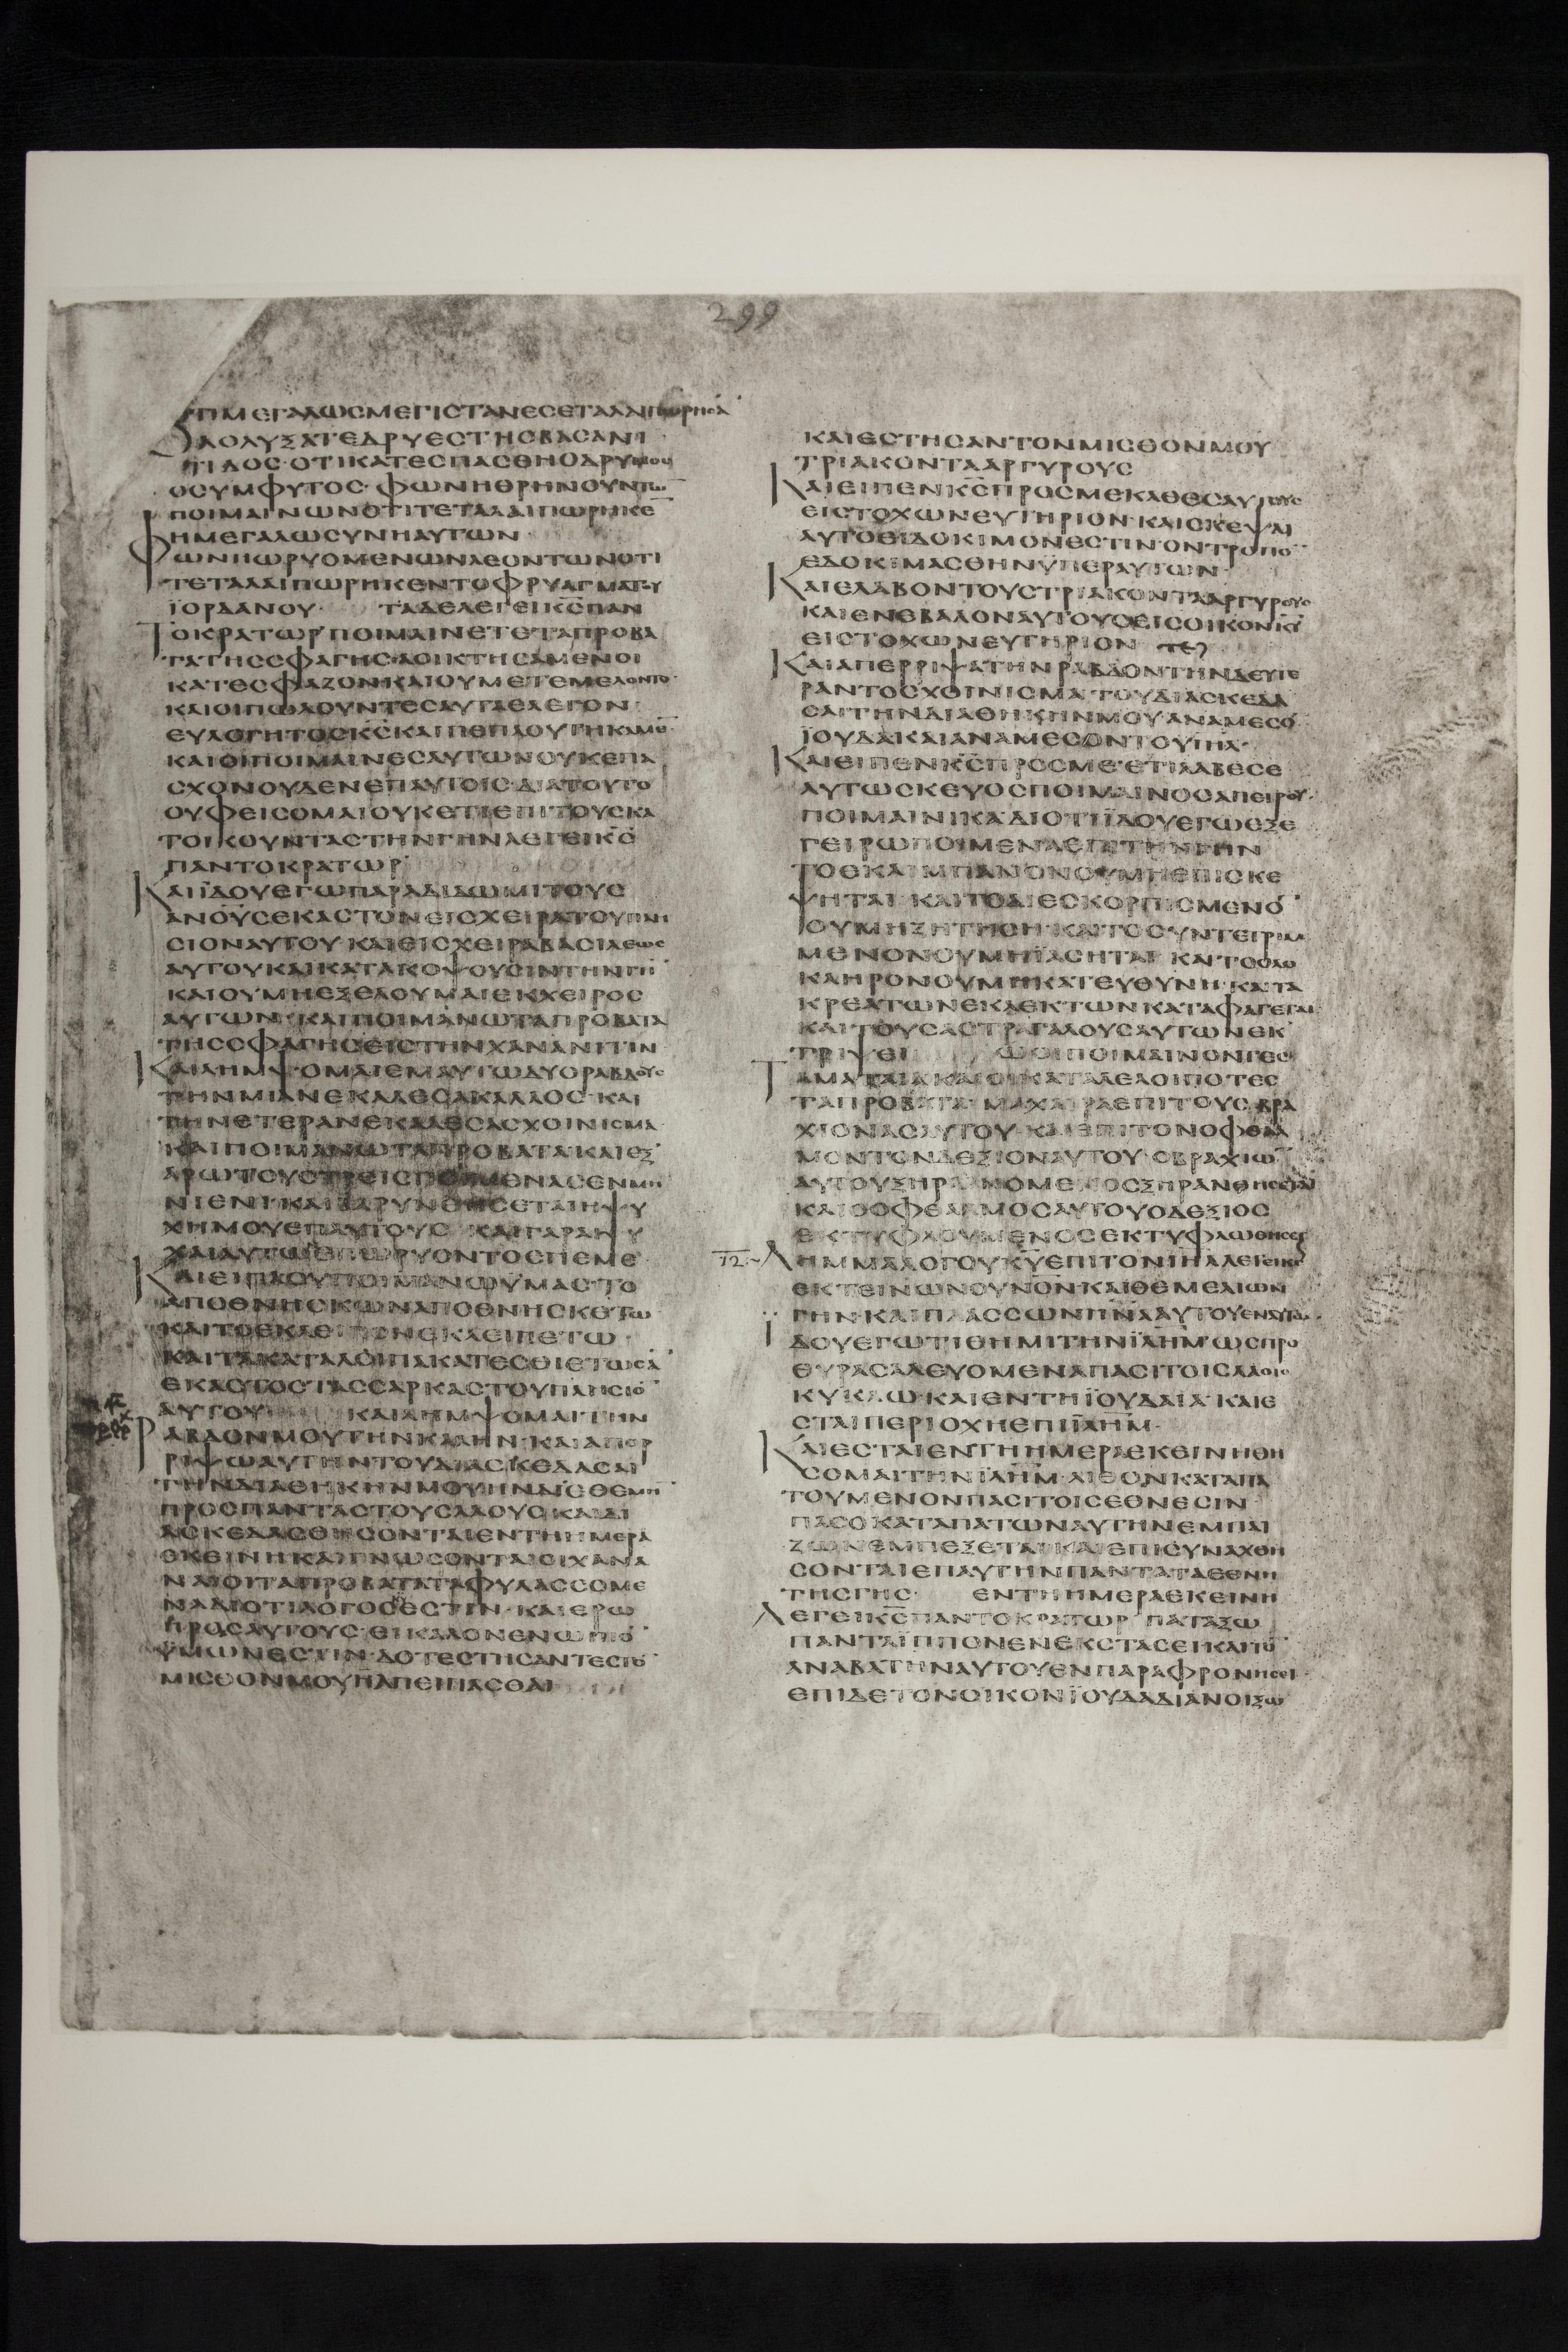 299
ΟΤΙΜΕΓΑΛΩΣΜΕΓΙΣΤΑΝΕΣΕΤΑΛΑΙΠΩΡΗΣΑ̅
ΟΛΟΛΥΞΑΤΕΔΡΥΕΣΤΗΣΒΑΣΑΝΙ
ΤΙΔΟΣ·ΟΤΙΚΑΤΕΣΠΑΣΘΗΟΔΡΥΜΟΣ
ΟΣΥΜΦΥΤΟΣ·ΦΩΝΗΘΡΗΝΟΥΝΤΩ̅
ΠΟΙΜΑΙΝΩΝΟΤΙΤΕΤΑΛΑΙΠΩΡΗΚΕ̅
ΗΜΕΓΑΛΩΣΥΝΗΑΥΤΩΝ·
ΦΩΝΗΩΡΥΟΜΕΝΩΝΛΕΟΝΤΩΝΟΤΙ
ΤΕΤΑΛΑΙΠΩΡΗΚΕΝΤΟΦΡΥΑΓΜΑΤΟΥ
ΪΟΡΔΑΝΟΥ· ΤΑΔΕΛΕΓΕΙΚ̅Σ̅ΠΑΝ
ΤΟΚΡΑΤΩΡ·ΠΟΙΜΑΙΝΕΤΕΤΑΠΡΟΒΑ
ΤΑΤΗΣΣΦΑΓΗΣ·ΑΟΙΚΤΗΣΑΜΕΝΟΙ
ΚΑΤΕΣΦΑΖΟΝ·ΚΑΙΟΥΜΕΤΕΜΕΛΟΝΤΟ·
ΚΑΙΟΙΠΩΛΟΥΝΤΕΣΑΥΤΑΕΛΕΓΟΝ·
ΕΥΛΟΓΗΤΟΣΚ̅Σ̅ΚΑΙΠΕΠΛΟΥΤΗΚΑΜΕ̅·
ΚΑΙΟΙΠΟΙΜΑΙΝΕΣΑΥΤΩΝΟΥΚΕΠΑ
ΣΧΟΝΟΥΔΕΝΕΠΑΥΤΟΙΣ·ΔΙΑΤΟΥΤΟ
ΟΥΦΕΙΣΟΜΑΙΟΥΚΕΤΙΕΠΙΤΟΥΣΚΑ
ΤΟΙΚΟΥΝΤΑΣΤΗΝΓΗΝΛΕΓΕΙΚ̅Σ̅
ΠΑΝΤΟΚΡΑΤΩΡ·
ΚΑΙΪΔΟΥΕΓΩΠΑΡΑΔΙΔΩΜΙΤΟΥΣ
ΑΝΟΥΣΕΚΑΣΤΟΝΕΙΣΧΕΙΡΑΤΟΥΠΛΗ
ΣΙΟΝΑΥΤΟΥ·ΚΑΙΕΙΣΧΕΙΡΑΒΑΣΙΛΕΩΣ
ΑΥΤΟΥ·ΚΑΙΚΑΤΑΚΟΨΟΥΣΙΝΤΗΝΓΗ̅
ΚΑΙΟΥΜΗΕΞΕΛΟΥΜΑΙΕΚΧΕΙΡΟΣ
ΑΥΤΩΝ·ΚΑΙΠΟΙΜΑΝΩΤΑΠΡΟΒΑΤΑ
ΤΗΣΣΦΑΓΗΣΕΙΣΤΗΝΧΑΝΑΝΙΤΙΝ
ΚΑΙΛΗΜΨΟΜΑΙΕΜΑΥΤΩΔΥΟΡΑΒΔΟΥΣ
ΤΗΝΜΙΑΝΕΚΑΛΕΣΑΚΑΛΛΟΣ·ΚΑΙ
ΤΗΝΕΤΕΡΑΝΕΚΑΛΕΣΑΣΧΟΙΝΙΣΜΑ
ΚΑΙΠΟΙΜΑΝΩΤΑΠΡΟΒΑΤΑ·ΚΑΙΕΞ
ΑΡΩΤΟΥΣΤΡΕΙΣΠΟΙΜΕΝΑΣΕΝΜΗ
ΝΙΕΝΙ·ΚΑΙΒΑΡΥΝΘΗΣΕΤΑΙΗΨΥ
ΧΗΜΟΥΕΠΑΥΤΟΥΣ ΚΑΙΓΑΡΑΙΨΥ
ΧΑΙΑΥΤΩΝΕΠΩΡΥΟΝΤΟΕΠΕΜΕ
ΚΑΙΕΙΠΑΟΥΠΟΙΜΑΝΩΥΜΑΣ·ΤΟ
ΑΠΟΘΝΗΣΚΩΝΑΠΟΘΝΗΣΚΕΤΩ
ΚΑΙΤΟΕΚΛΕΙΠΟΝΕΚΛΕΙΠΕΤΩ·
ΚΑΙΤΑΚΑΤΑΛΟΙΠΑΚΑΤΕΣΘΙΕΤΩΣΑ̅
ΕΚΑΣΤΟΣΤΑΣΣΑΡΚΑΣΤΟΥΠΛΗΣΙΟ̅
ΑΥΤΟΥ· ΚΑΙΛΗΜΨΟΜΑΙΤΗΝ
ΡΑΒΔΟΝΜΟΥΤΗΝΚΑΛΗΝ·ΚΑΙΑΠΟΡ
ΡΙΨΩΑΥΤΗΝΤΟΥΔΙΑΣΚΕΔΑΣΑΙ
ΤΗΝΔΙΑΘΗΚΗΝΜΟΥΗΝΔΙΕΘΕΜΗ̅
ΠΡΟΣΠΑΝΤΑΣΤΟΥΣΛΑΟΥΣ·ΚΑΙΔΙ
ΑΣΚΕΔΑΣΘΗΣΟΝΤΑΙΕΝΤΗΗΜΕΡΑ
ΕΚΕΙΝΗ·ΚΑΙΓΝΩΣΟΝΤΑΙΟΙΧΑΝΑ
ΝΑΙΟΙΤΑΠΡΟΒΑΤΑΤΑΦΥΛΑΣΣΟΜΕ
ΝΑΔΙΟΤΙΛΟΓΟΣΕΣΤΙΝ·ΚΑΙΕΡΩ
ΠΡΟΣΑΥΤΟΥΣ·ΕΙΚΑΛΟΝΕΝΩΠΙΟ̅
ΥΜΩΝΕΣΤΙΝ·ΔΟΤΕΣΤΗΣΑΝΤΕΣΤΟ̅
ΜΙΣΘΟΝΜΟΥΗΑΠΕΙΠΑΣΘΑΙ
ΚΑΙΕΣΤΗΣΑΝΤΟΝΜΙΣΘΟΝΜΟΥ
ΤΡΙΑΚΟΝΤΑΑΡΓΥΡΟΥΣ
ΚΑΙΕΙΠΕΝΚ̅Σ̅ΠΡΟΣΜΕΚΑΘΕΣΑΥΤΟΥΣ
ΕΙΣΤΟΧΩΝΕΥΤΗΡΙΟΝ·ΚΑΙΣΚΕΨΑΙ
ΑΥΤΟΕΙΔΟΚΙΜΟΝΕΣΤΙΝ·ΟΝΤΡΟΠΟ̅
ΕΔΟΚΙΜΑΣΘΗΝΫΠΕΡΑΥΤΩΝ·
ΚΑΙΕΛΑΒΟΝΤΟΥΣΤΡΙΑΚΟΝΤΑΑΡΓΥΡΟΥΣ
ΚΑΙΕΝΕΒΑΛΟΝΑΥΤΟΥΣΕΙΣΟΙΚΟΝΚ̅Υ̅
ΕΙΣΤΟΧΩΝΕΥΤΗΡΙΟΝ
ΚΑΙΑΠΕΡΡΙΨΑΤΗΝΡΑΒΔΟΝΤΗΝΔΕΥΤΕ
ΡΑΝΤΟΣΧΟΙΝΙΣΜΑ·ΤΟΥΔΙΑΣΚΕΔΑ
ΣΑΙΤΗΝΔΙΑΘΗΚΗΝΜΟΥΑΝΑΜΕΣΟ̅
ΪΟΥΔΑΚΑΙΑΝΑΜΕΣΟΝΤΟΥΙ̅Η̅Λ̅·
ΚΑΙΕΙΠΕΝΚ̅Σ̅ΠΡΟΣΜΕ·ΕΤΙΛΑΒΕΣΕ
ΑΥΤΩΣΚΕΥΟΣΠΟΙΜΑΙΝΟΣΑΠΕΙΡΟΥ·
ΠΟΙΜΑΙΝΙΚΑ·ΔΙΟΤΙΪΔΟΥΕΓΩΕΞΕ
ΓΕΙΡΩΠΟΙΜΕΝΑΕΠΙΤΗΝΓΗΝ
ΤΟΕΚΛΙΜΠΑΝΟΝΟΥΜΗΕΠΙΣΚΕ
ΨΗΤΑΙ·ΚΑΙΤΟΔΙΕΣΚΟΡΠΙΣΜΕΝΟ̅
ΟΥΜΗΖΗΤΗΣΗ·ΚΑΙΤΟΣΥΝΤΕΤΡΙΜ
ΜΕΝΟΝΟΥΜΗΪΑΣΗΤΑΙ ΚΑΙΤΟΟΛΟ
ΚΛΗΡΟΝΟΥΜΗΚΑΤΕΥΘΥΝΗ·ΚΑΙΤΑ
ΚΡΕΑΤΩΝΕΚΛΕΚΤΩΝΚΑΤΑΦΑΓΕΤΑΙ
ΚΑΙΤΟΥΣΑΣΤΡΑΓΑΛΟΥΣΑΥΤΩΝΕΚ
ΤΡΙΨΕΙ ΩΟΙΠΟΙΜΑΙΝΟΝΤΕΣ
ΤΑΜΑΤΑΙΑΚΑΙΟΙΚΑΤΑΛΕΛΟΙΠΟΤΕΣ
ΤΑΠΡΟΒΑΤΑ·ΜΑΧΑΙΡΑΕΠΙΤΟΥΣΒΡΑ
ΧΙΟΝΑΣΑΥΤΟΥ·ΚΑΙΕΠΙΤΟΝΟΦΘΑΛ
ΜΟΝΤΟΝΔΕΞΙΟΝΑΥΤΟΥ·ΟΒΡΑΧΙΩ̅
ΑΥΤΟΥΞΗΡΑΙΝΟΜΕΝΟΣΞΗΡΑΝΘΗΣΕΤΑΙ
ΚΑΙΟΟΦΘΑΛΜΟΣΑΥΤΟΥΟΔΕΞΙΟΣ
ΕΚΤΥΦΛΟΥΜΕΝΟΣΕΚΤΥΦΛΩΘΗΣΕΤ
ΛΗΜΜΑΛΟΓΟΥΚ̅Υ̅ΕΠΙΤΟΝΙ̅Η̅Λ̅ΛΕΓΕΙΚ̅Σ̅
ΕΚΤΕΙΝΩΝΟΥΝΟΝ·ΚΑΙΘΕΜΕΛΙΩΝ
ΓΗΝ·ΚΑΙΠΛΑΣΣΩΝΠ̅Ν̅Α̅ΑΥΤΟΥΕΝΑΥΤΩ·
ΪΔΟΥΕΓΩΤΙΘΗΜΙΤΗΝΪΛΗΜ·ΩΣΠΡΟ
ΘΥΡΑΣΑΛΕΥΟΜΕΝΑΠΑΣΙΤΟΙΣΛΑΟΙΣ
ΚΥΚΛΩ·ΚΑΙΕΝΤΗΪΟΥΔΑΙΑ·ΚΑΙΕ
ΣΤΑΙΠΕΡΙΟΧΗΕΠΙΪΛΗΜ·
ΚΑΙΕΣΤΑΙΕΝΤΗΗΜΕΡΑΕΚΕΙΝΗΘΗ
ΣΟΜΑΙΤΗΝΪΛΗΜ·ΛΙΘΟΝΚΑΤΑΠΑ
ΤΟΥΜΕΝΟΝΠΑΣΙΤΟΙΣΕΘΝΕΣΙΝ·
ΠΑΣΟΚΑΤΑΠΑΤΩΝΑΥΤΗΝΕΜΠΑΙ
ΖΩΝΕΜΠΕΞΕΤΑΙ·ΚΑΙΕΠΙΣΥΝΑΧΘΗ
ΣΟΝΤΑΙΕΠΑΥΤΗΝΠΑΝΤΑΤΑΕΘΝΗ
ΤΗΣΓΗΣ· ΕΝΤΗΗΜΕΡΑΕΚΕΙΝΗ
ΛΕΓΕΙΚ̅Σ̅ΠΑΝΤΟΚΡΑΤΩΡ·ΠΑΤΑΞΩ
ΠΑΝΤΑΪΠΠΟΝΕΝΕΚΣΤΑΣΕΙ·ΚΑΙΤΟ̅
ΑΝΑΒΑΤΗΝΑΥΤΟΥΕΝΠΑΡΑΦΡΟΝΗΣΕΙ·
ΕΠΙΔΕΤΟΝΟΙΚΟΝΪΟΥΔΑΔΙΑΝΟΙΞΩ